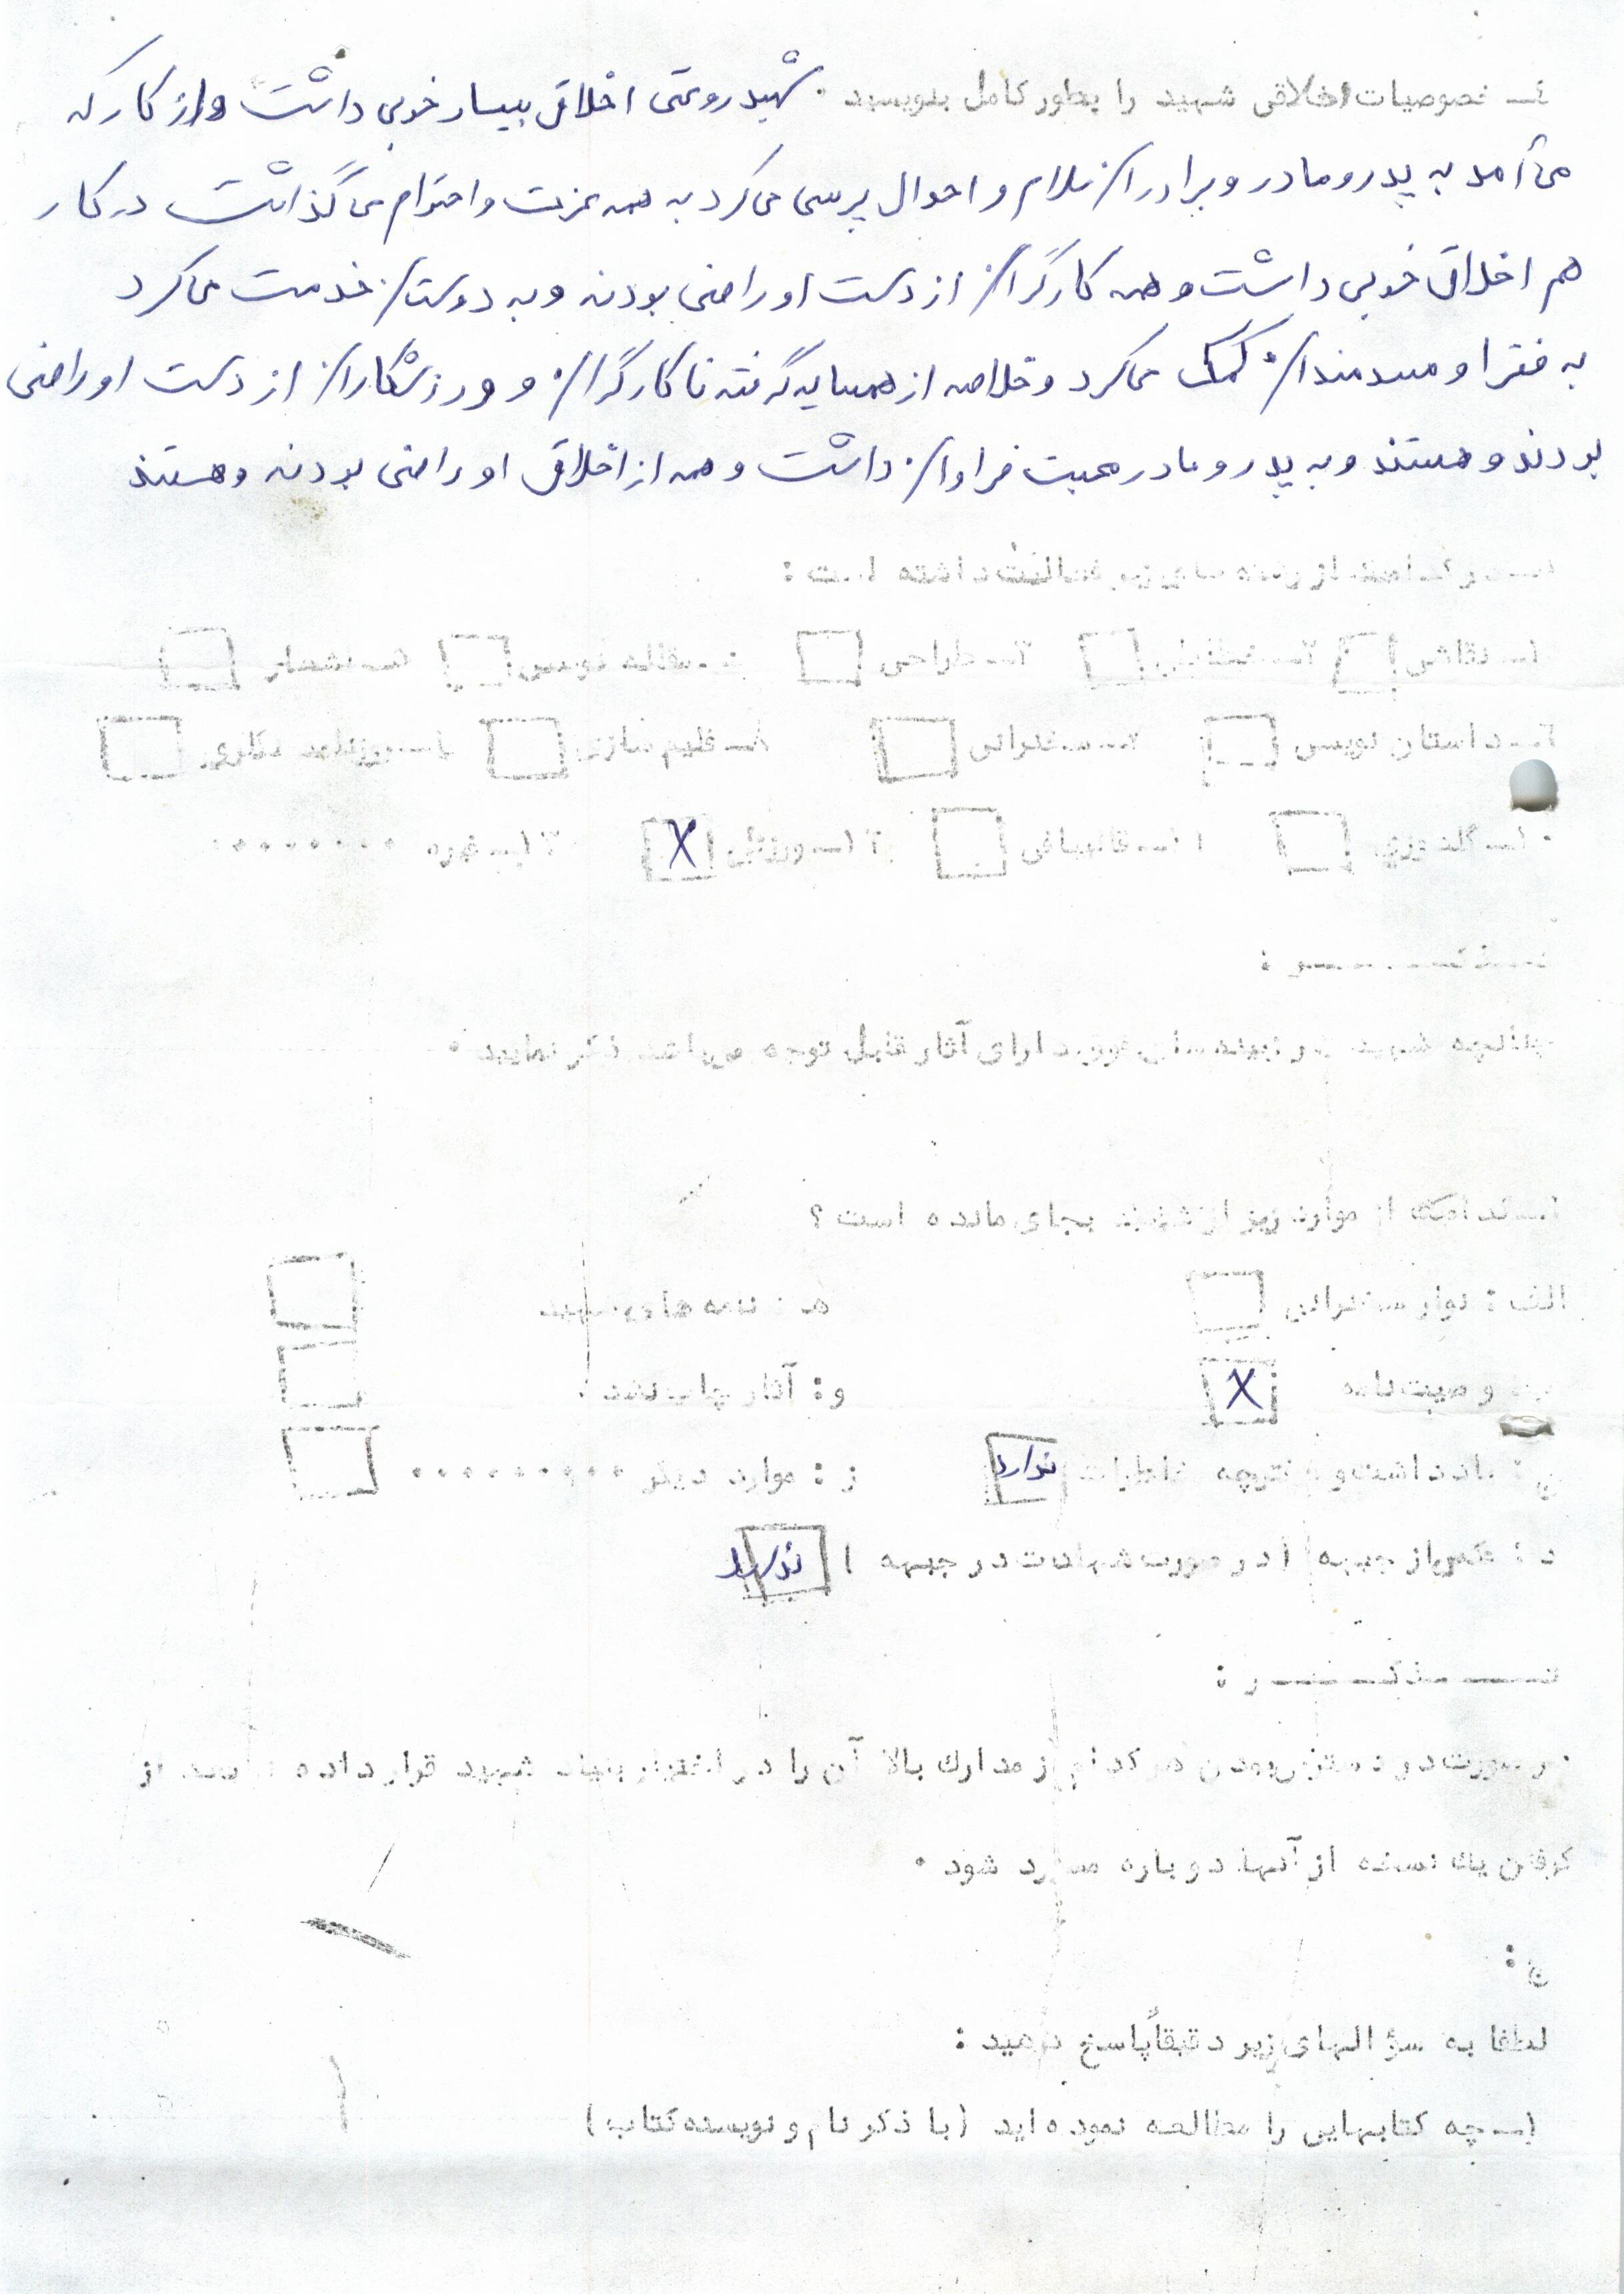 ٤ـ خصوصیات اخلاقی شهید را بطور کامل بنویسید . شهید رومتی اخلاق بیسار خوبی داشت و از کار که
می آمد به پدر و مادر و برادران سلام و احوال پرسی می کرد به همه عزت و احترام می گذاشت در کار
هم اخلاق خوبی داشت و همه کارگران از دست او راضی بودند و به دوستان خدمت می کرد
به فقرا و مستمندان کمک می کرد و خلاصه از همسایه گرفته تا کارگران و ورزشکاران از دست او راضی
بودند و هستند و به پدر و مادر محبت فراوان داشت و همه از اخلاق او راضی بودند و هستند
از رشته های زیر فعالیت داشته است :
۱ـ نقاشی ۲ـ خطاطی ۳ـ طراحی ٤ـ مقاله نویسی ۵ـ شعار
٦ـ داستان نویسی ۷ـ سخنرانی ۸ـ فلیم سازی ۹ـ روزنامه نگاری
۱۰ـ گلدوزی ۱۱ـ قالیبافی ۱۲ـ ورزش X ۱۳ـ غیره ........
چنانچه شهید در زمینه های فوق دارای آثار قابل توجه می باشد ذکر نمایید .
کدامیک از موارد زیر از شهید بجای مانده است ؟
الف : نوار سخنرانی ه : نامه های شهید
ب : وصیت نامه X و : آثار چاپ نشده
ج : یادداشت و دفترچه خاطرات ندارد ز : موارد دیگر .........
د : عکس از جبهه ( در صورت شهادت در جبهه ) ندارد
تــــــذکــــــر :
در صورت در دسترس بودن هر کدام از مدارك بالا آن را در اختیار بنیاد شهید قرار داده تا بعد از
گرفتن یك نسخه از آنها دوباره مسترد شود .
ج :
لطفا به سؤالهای زیر دقیقاً پاسخ دهید :
۱ـ چه کتابهایی را مطالعه نموده اید (با ذکر نام و نویسنده کتاب)